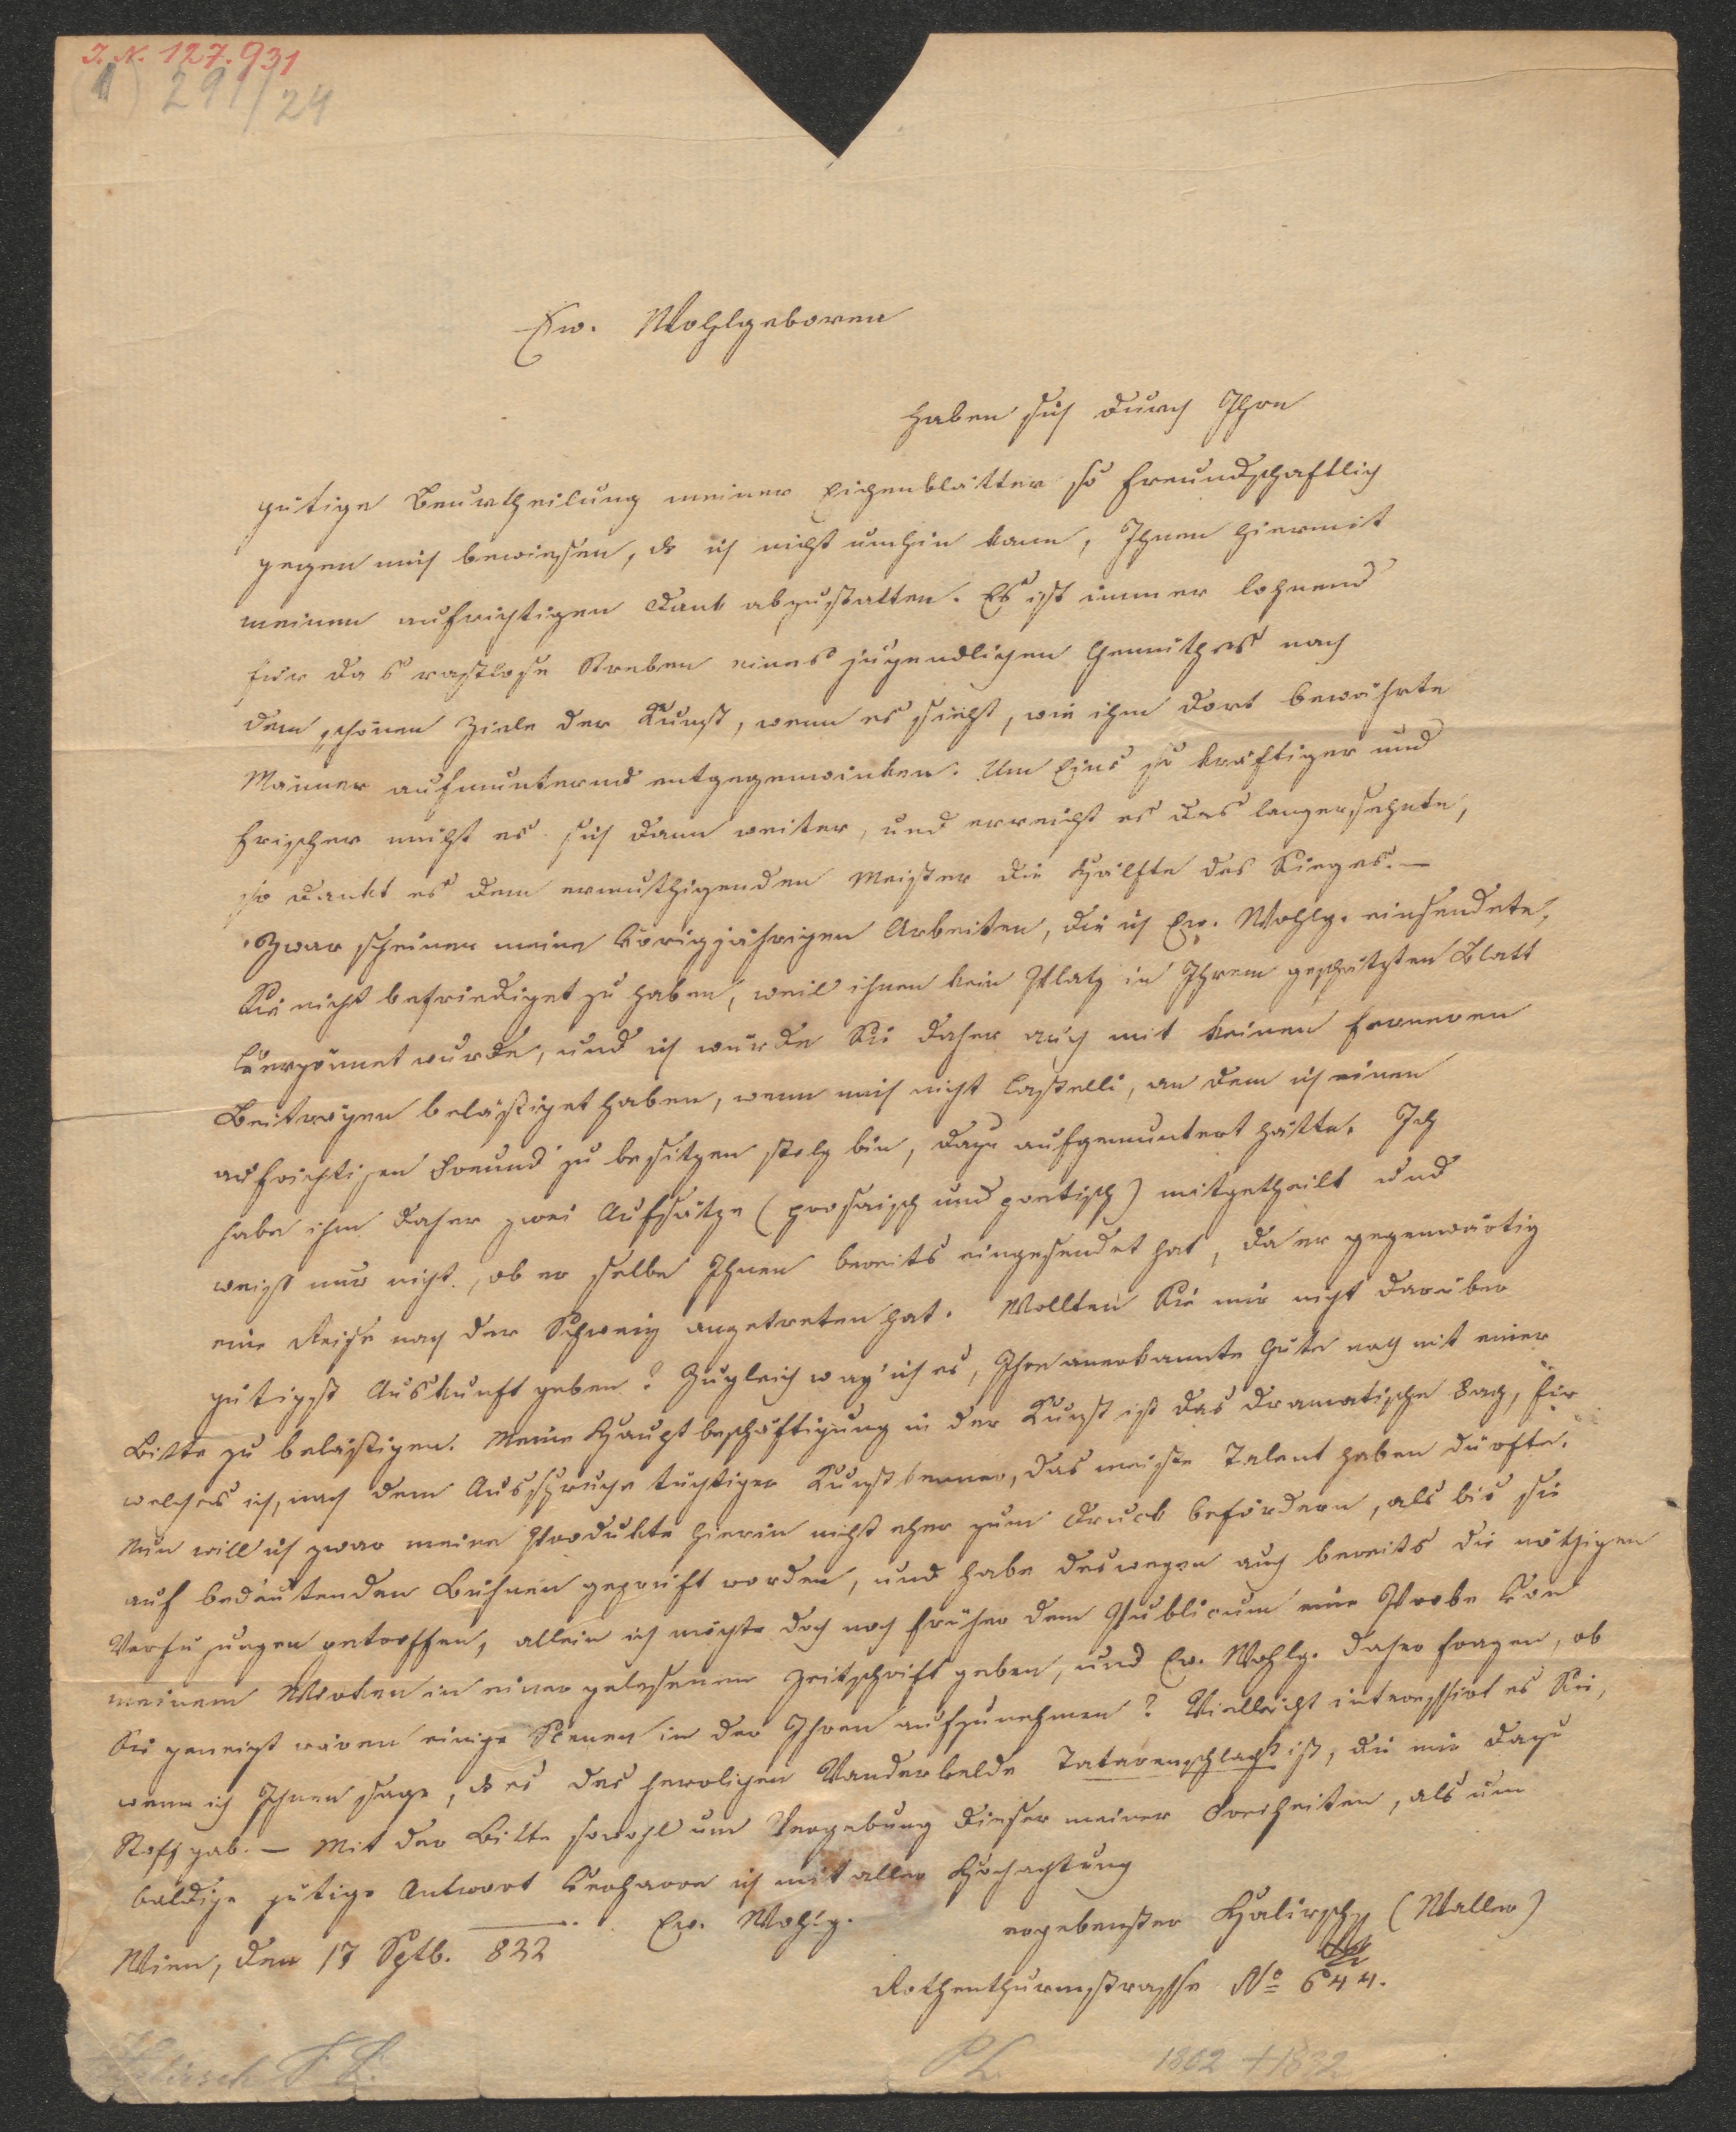 I. N. 127.931
(1) 291/24
Ew. Wohlgeboren
haben sich durch Ihre
gütige Beurtheilung meiner Eichenblätter so freundschaftlich
gegen mich bewiesen, ds ich nicht umhin kann, Ihnen hiermit
meinen aufrichtigen Dank abzustatten. Es ist immer lohnend
für das rastlose Streben eines jugendlichen Gemüthes nach
dem schönen Ziele der Kunst, wenn es sieht, wie ihm dort bewährte
Männer aufmunternd entgegenwinken. Um Eins so kräftiger und
frischer müht es sich dann weiter, und erreicht es das langersehnte,
so dankt es dem ermuthigenden Meister die Hälfte des Sieges. –
Zwar scheinen meine vorigjährigen Arbeiten, die ich Ew. Wohlg. einsendete,
Sie nicht befriediget zu haben, weil ihnen kein Platz in Ihrem geschätzten Blatt
vergönnet wurde, und ich würde Sie daher auch mit keinen ferneren
Beiträgen belästiget haben, wenn mich nicht Castelli, an dem ich einen
aufrichtigen Freund zu besitzen stolz bin, dazu aufgemuntert hätte. Ich
habe ihm daher zwei Aufsätze (prosaisch und poetisch) mitgetheilt und
weiß nur nicht, ob er selbe Ihnen bereits eingesendet hat, da er gegenwärtig
eine Reise nach der Schweiz angetreten hat. Wollten Sie mir nicht darüber
gütigst Auskunft geben? Zugleich wag' ich es, Ihre anerkannte Güte noch mit einer
Bitte zu belästigen. Meine Hauptbeschäftigung in der Kunst ist das dramatische Fach, für
welches ich, nach dem Ausspruche tüchtiger Kunstkenner, das meiste Talent haben dürfte.
Nun will ich zwar meine Produkte hierin nicht eher zum Druck befördern, als bis sie
auf bedeutenden Bühnen geprüft worden, und habe deswegen auch bereits die nöthigen
Verfügungen getroffen, allein ich möchte doch noch früher dem Publicum eine Probe von
meinem Wirken in einer gelesenen Zeitschrift geben, und Ew. Wohlg. daher fragen, ob
Sie geneigt wären einige Scenen in der Ihren aufzunehmen? Vielleicht interessirt es Sie,
wenn ich Ihnen sage, ds es des herrlichen Vandervelde Tatarenschlacht ist, die mir dazu
Stoff gab. – Mit der Bitte sowohl um Vergebung dieser meiner Freiheiten, als um
baldige gütige Antwort verharre ich mit aller Hochachtung
Ew. Wohlg.
ergebenster Halirsch (Waller)
Wien, den 17 Sptb. 822
Rothenthurmstrasse No 644.
Halirsch F. L.
1802 † 1832